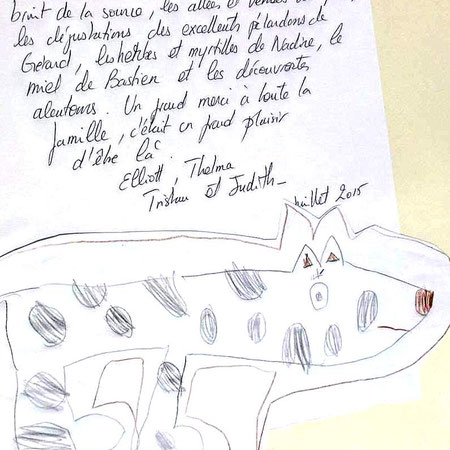 bruit de la source, les allées et venues
les dégustations des excellents pélardons de
Gérard, les herbes et myrtilles de Nadine, le
miel de Bastien et les découvertes
alentours. Un grand merci à toute la
famille, c'était un grand plaisir
d'être là.
Elliott, Thelma
Tristan et Judith_
juillet 2015